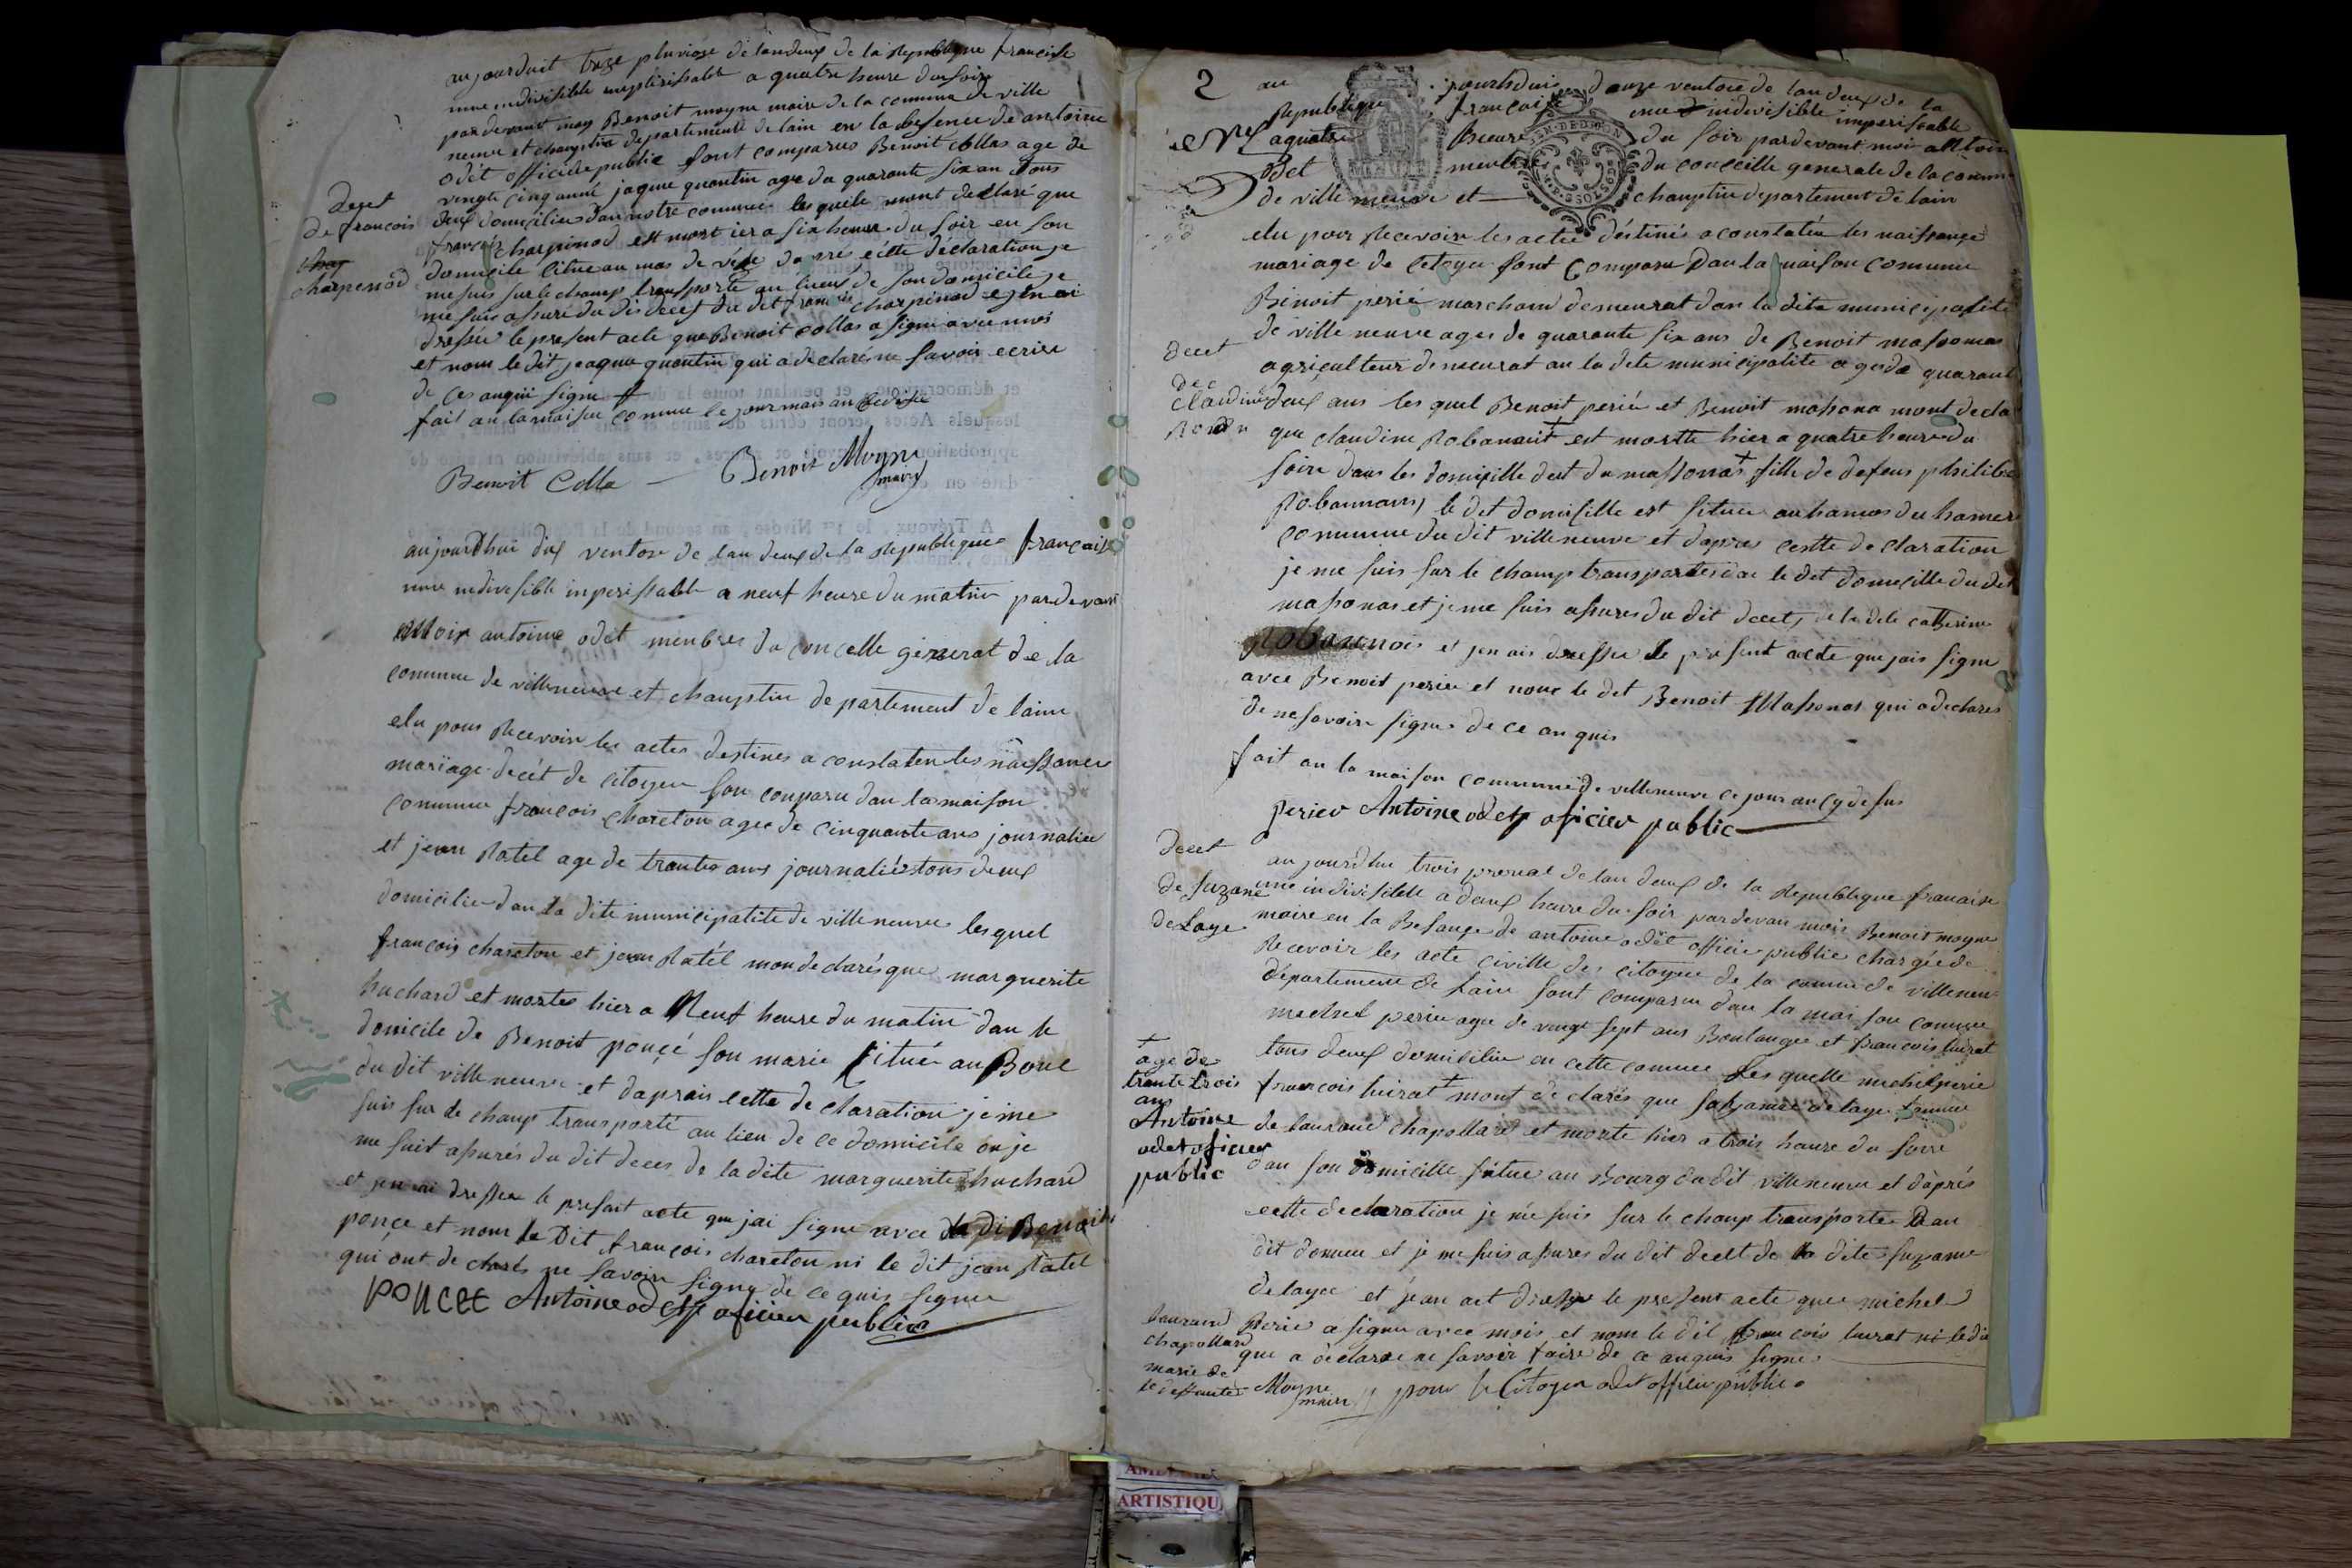 aujourduit treze pluviose de landeux de la Republique francoise
une indivisible imperissable a quatre heure du soir
par devant moy Benoit moyne maire de la comune de ville
neuve et chanptin departement de lain en la presence de antoine
odet officier public sont comparus Benoit Collas age de
vingte cinq anné jaque quantin age de quarante six an tous
deux domicilies dan notre comune les quele mont declaré que
francois charpinod est mort ier a six heure du soir en son
domicile citue au mas de
cette déclaration je
me suis sur le champ transporté au lieux de son domicile je
me suis assuré du dit decet du dit francois charpinod et jen ai
dressée le present acte que Benoit collas a signé avec moi
et nom le dit jeaque quantin qui a declaré ne savoir ecrire
de ces anquï signe
fait an la maison comune le jour mois an
decet
de francois
charpenod
Benoit Colla
Benoit Moyne
maire
aujourdhui dix ventose de lan deux de la Republique francaise
une indivisible inperissable a neuf heure du matin pardevant
moi antoine odet menbres du concelle general de la
comune de villeneuve et chanptin departement de laine
elu pour Recevoir les actes destines a constaten les naissance
mariage decét de citoyen son conparu dan la maison
comune francois chareton agee de cinquante ans journalier
et jean Ratel age de trante ans journaliés tous deux
domicilie dan la dite municipalite de villeneuve lesquel
francois chareton et jean Ratél mon declarés que marguerite
huchard et morte hier a Neuf heure du matin dan le
domicile de Benoit ponçé son marie situé au Bour
du dit villeneuve et daprais cette declaration je me
suis sur le champ transporté au lieu de ce domicile ou je
me suit assurés du dit deces de la dite marguerite huchard
et jen ai dressee le presant acte que jai signe avec le di Benoit
ponce et nom le Dit francois chareton ni le dit jean Ratel
qui ont declarés ne savoir signy de ce quis signer
PONCET Antoine odet oficier public
2
au jourdhui douze ventose de lan deux de la
Republique francaise une indivisible imperissable
a quatre heure du soir pardevant moi antoine
odet menbre du conceille generale de la comune
de villeneuve et chanptin departement de lain
elu pour Recevoir les actes déstinés a constatén les naissance
mariage de Citoyen sont Comparu Dan la maison comune
Benoit perié marchand demeurat dan la dite municipalité
de ville neuve ages de quarante six ans de Benoit massonas
agriculteur demeurat an la dite municipalite age de quarante
deux ans les quel Benoit perié et Benoit massona mont decla
que claudine Robanait est mortte hier a quatre heure du
soire dans les domicille deut du massonat fille de defeus philibe
le det domisille est situee au hamos du hamer
comune du dit villeneuve et dapres cestte declaration
je me suis sur le champ transportés dan le det domicille du det
massonas et je me suis assures du dit decet de la dite catherine
et jen ais dressee le present acte que jais signe
avec Benoit perier et nome le det Benoit Massonas qui a declares
de ne savoir signe de ce an quis
fait an la maison comunne de villeneuve ce jour an cy desus
perier Antoine odet oficier public
decet
claudine
decet
de suzane
delaye
aujourdhui trois prereal de lan deux de la Republique francaise
une indivisible a deux heure du soir pardevan moi Benoit moyne
maire en la Presance de antoine odét officier public chargée de
Recevoir les acte civille des citoyen de la comune de villeneuv
departement de Lain sont comparu dan la maison comune
michel perier agee de vingt sept ans Boulanger et francois luirat
tous deux domicilie en cette comune Les quelle michel perie
francois luirat mont declarés que suzanne delaye famme
de laurand chapollard et morte hier a trois heure du soire
dan son domicille situe au Bourg du dit villeneuve et daprés
cette declaration je me suis sur le champ transporte Dan
dit domicu et je me suis assures du dit decet de la dite suzanne
delaye et jéan ait dresse le present acte que michel
Perie a signe avec mois et nom le dit francois luirat ni le dit
que a déclaré ne savoir faire de ce anquis signe
Moyne maire pour le Citoyen odet officier public
age de
trante trois
an
Antoine
odet oficier
public
laurand
chapollard
marie de
AMBEDIEU
ARTISTIQU